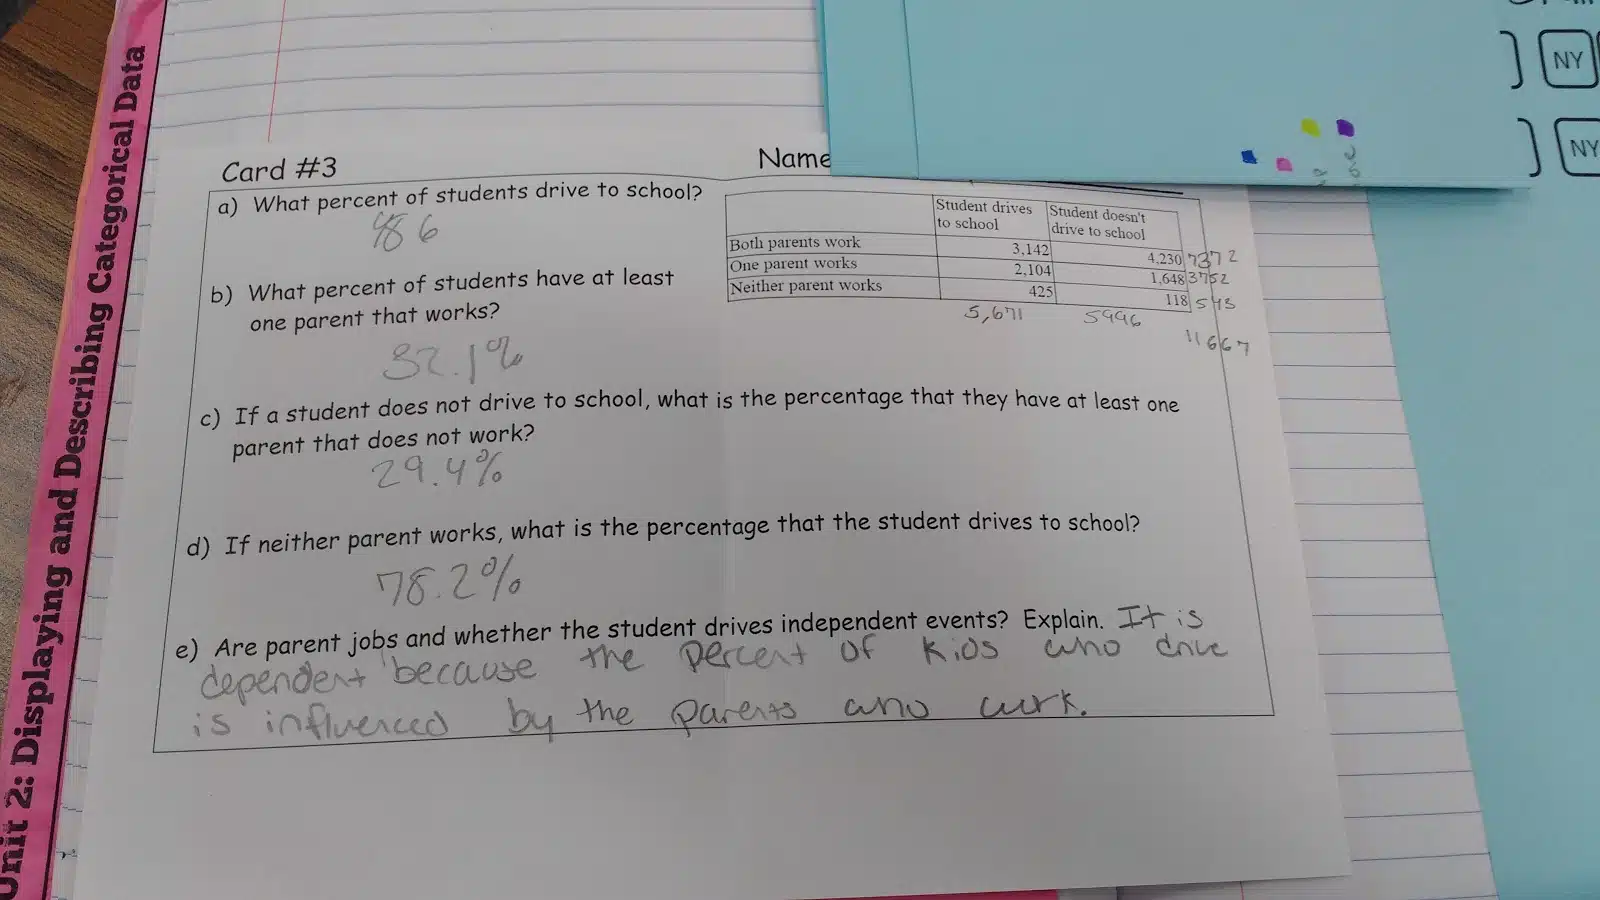 Unit 2: Displaying and Describing Categorical Data
NY
NY
Card #3
Name
a) What percent of students drive to school?
486
Student drives to school
Student doesn't drive to school
Both parents work 3,142 4,230 7372
One parent works 2,104 1,648 3752
Neither parent works 425 118 543
5,671 5996
11667
b) What percent of students have at least
one parent that works?
32.1%
c) If a student does not drive to school, what is the percentage that they have at least one
parent that does not work?
29.4%
d) If neither parent works, what is the percentage that the student drives to school?
78.2%
e) Are parent jobs and whether the student drives independent events? Explain. It is
dependent because the percent of kids who drive
is influenced by the parents who work.